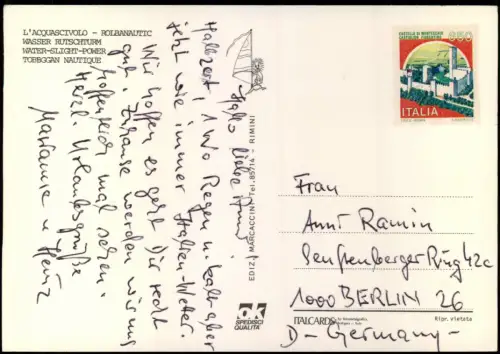 L'ACQUASCIVOLO - ROLBANAUTIC
WASSER RUTSCHTURM
WATER-SLIGHT-POWER
TOBBGGAN NAUTIQUE
Hallo liebe Anni!
Halbzeit! 1 Wo Regen u. kalt aber
jetzt wie immer Italien-Wetter.
Wir hoffen es geht Dir recht
gut. Zuhause werden wir uns
hoffentlich mal sehen.
Herzl. Urlaubsgrüße
Marianne u. Heinz
EDIZ. MARCACCINI Tel. 85714 - RIMINI
CASTELLO DI MONTECCHIO
CASTIGLION FIORENTINO
850
ITALIA
Frau
Anni Ramin
Senftenberger Ring 42c
1000 BERLIN 26
D-Germany-
OK
SPEDISCI
QUALITÀ
ITALCARDS
Ripr. vietata